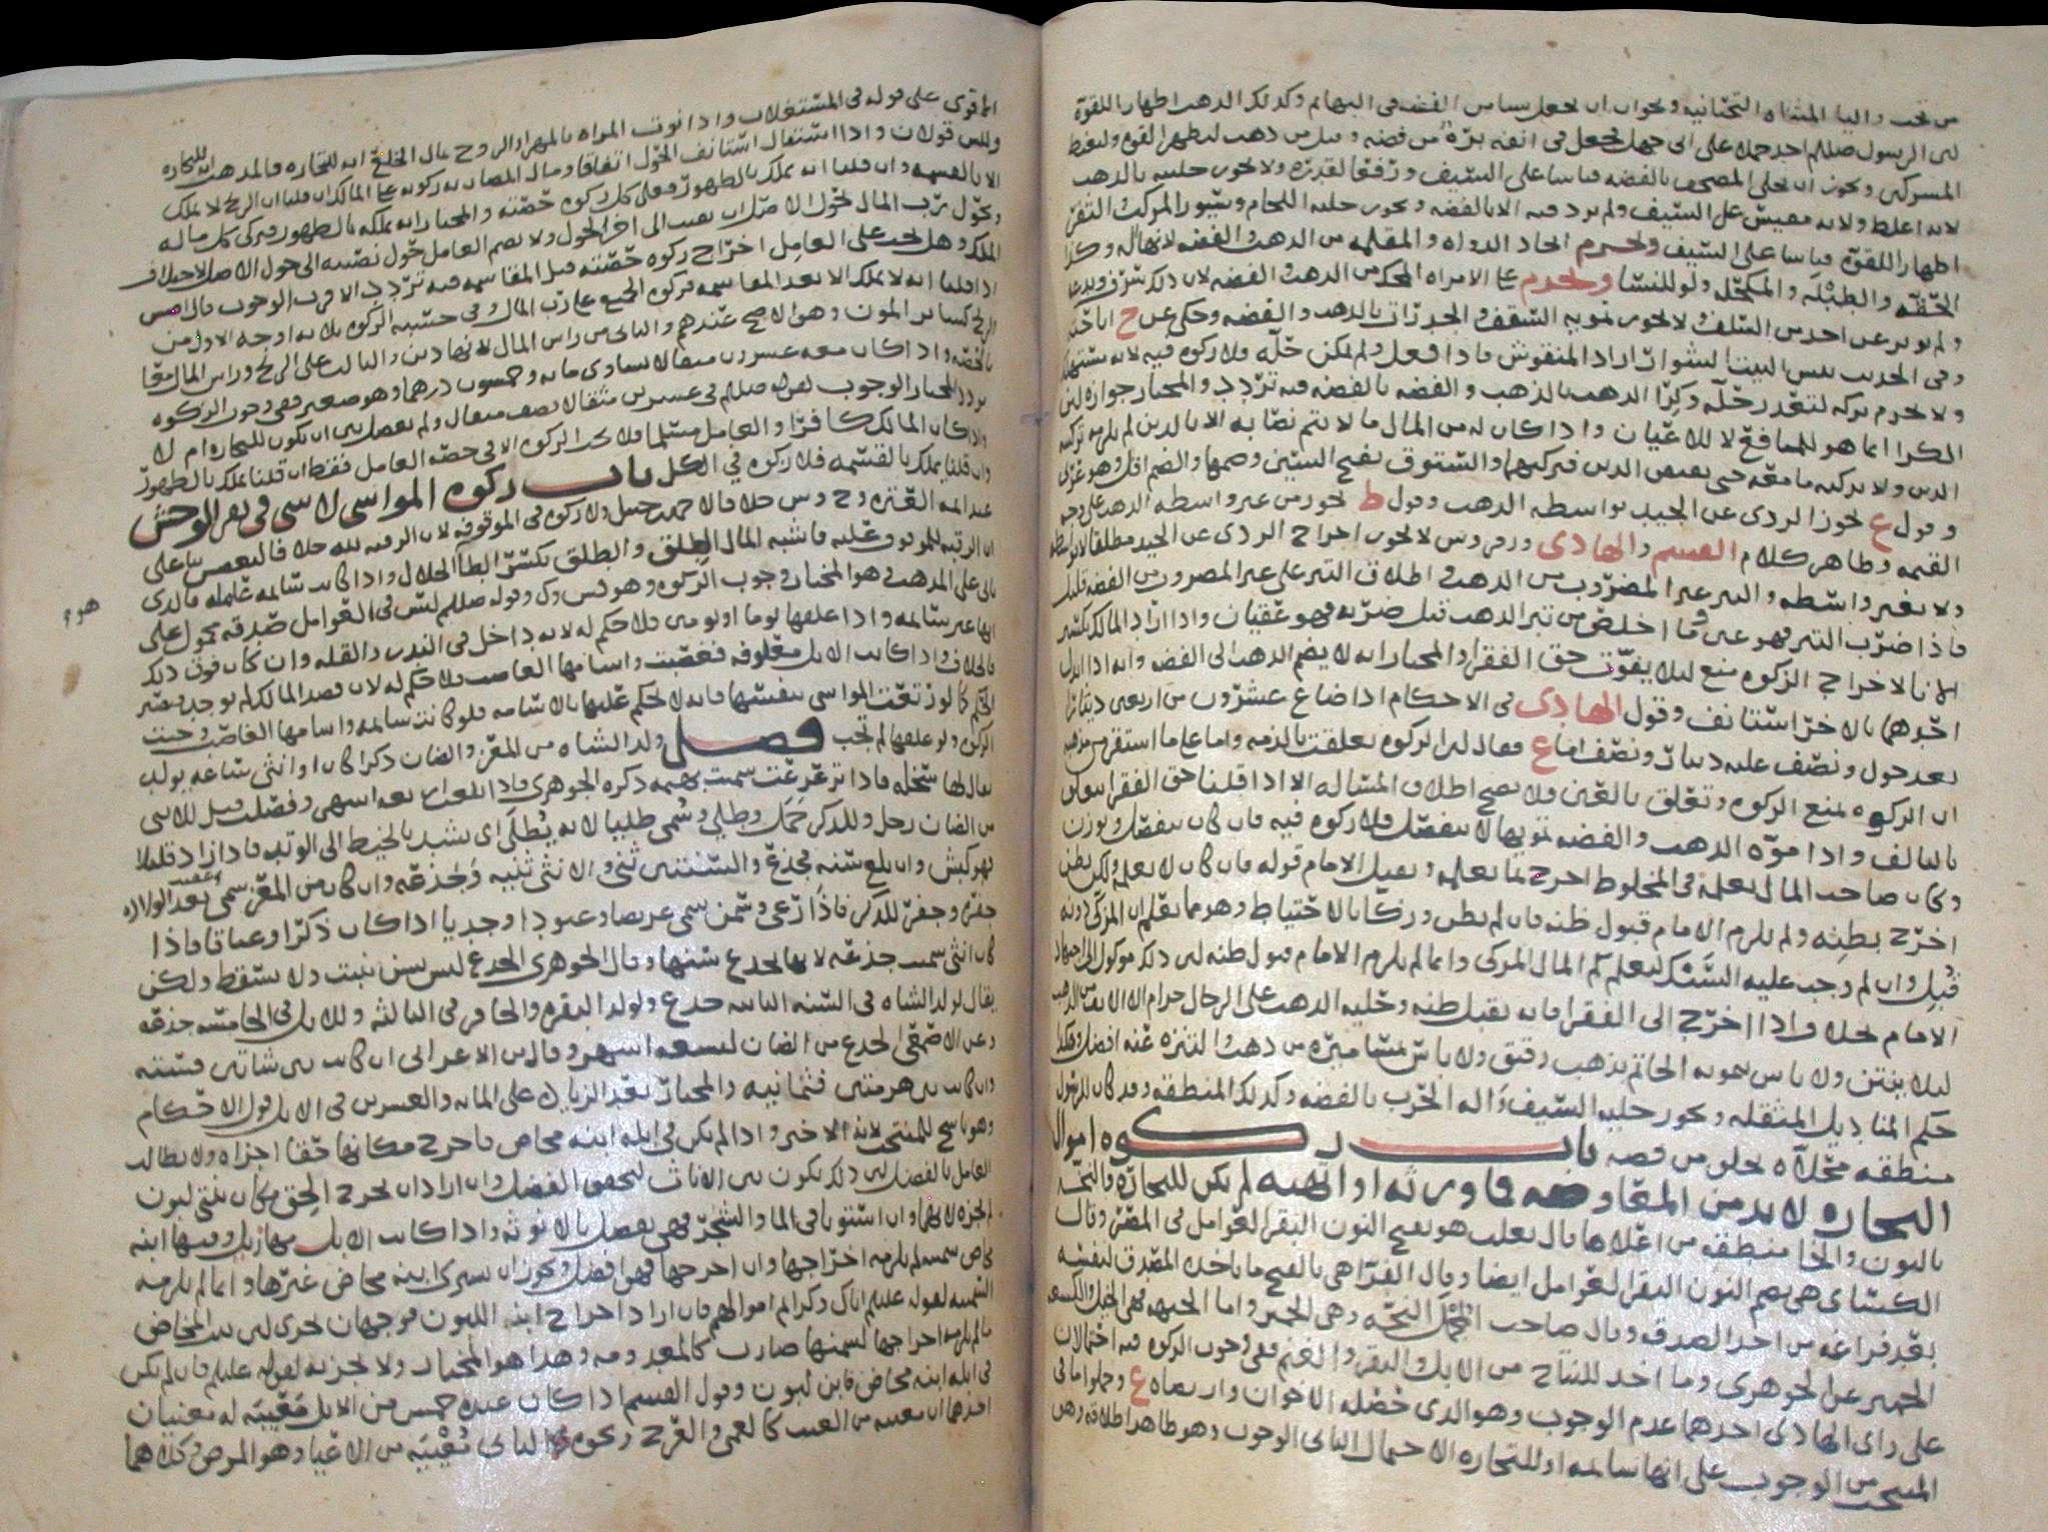 من تحت والياء المثناه التحتانيه ويجوز ان يجعل سياس الفضه في البهايم وكذلك الذهب اظهارا للقوة
لان الرسول صللم اهدى جملا على ابي جهل لجعل في انفه برة من فضه وقيل من ذهب ليظهر القوه وليغيظ
المشركين ويجوز ان يحلى المصحف بالفضه قياسا على السيف ورفعا لقدره ولا يجوز حليته بالذهب
لانه اغلظ ولانه مقيس على السيف ولم يرد فيه الا بالفضه ويجوز حليه اللجام وسيور المركب الثفر
اظهارا للقوة قياسا على السيف ويحرم اتخاذ الدواه والمقلمه من الذهب والفضه لانها اله وكذا
الحقه والطبله والمكحله ولو للنسا ويحرم على الامراه المحك من الذهب والفضه لان ذلك سرف وبدعه
ولم يوثر عن احد من السلف ولا يجوز تمويه السقف والجدرات بالذهب والفضه وحكي عن ح اباحته
ولا يحرم تركه لتعذر حله وكرا الذهب بالذهب والفضه بالفضه فيه تردد والمختار جوازه لان
الكرا انما هو للمنافع لا للاعيان واذا كان له من المال ما لا يتم نصابه الا بالدين لم يلزمه تزكيه
الدين ولا تزكيه ما معه حتى يقبض الدين فيزكيهما والستوق بفتح السين وضمها والضم اقل وهو
وقول ع يجوز الردي عن الجيد بواسطه الذهب وقول ط يجوز من غير واسطه الذهب على وجه
القيمه وظاهر كلام القسم والهادي وم وس لا يجوز اخراج الردي عن الجيد مطلقا
ولا بغير واسطه والتبر غير المضروب من الذهب واطلاق التبر على غير المضروب من الفضه قليل
فاذا ضرب التبر فهو عين وما اخلص من تبر الذهب قبل ضربه فهو عقيان واذا اراد المالك
الاخراج الزكوه منع ليلا يفوت حق الفقرا والمختار انه لا يضم الذهب الى الفضه وانه اذا
احدهما بالاخر استانف وقول الهادي في الاحكام اذا ضاع عشرون من اربعين دينارا
بعد حول ونصف عليه دينار ونصف اما ع فقال لان الزكوه تعلقت بالذمه واما على ما استقر من مذهب
ان الزكوه تمنع الزكوه وتتعلق بالعين فلا يصح اطلاق المسئاله الا اذا قلنا حق الفقرا يتعلق
بالتالف واذا موه الذهب والفضه تمويها لا ينفصل فلا زكوه فيه فان كان ينفصل ويوزن
وكان صاحب المال يعلمه في المخلوط اخرج بما يعلمه ويقبل الامام قوله فان كان لا يعلم ولكن يظن
اخرج بظنه ولم يلزم الامام قبول ظنه فان لم يظن وزكا بالاحتياط وهو مما يعلم ان المزكى دونه
قبل وان لم وجب عليه السبك ليعلم كم المال المزكى وانما لم يلزم الامام قبول ظنه لان ذلك موكول الى اجتهاد
الامام واذا اخرج الى الفقرا فانه يقبل ظنه وحليه الذهب على الرجال حرام الا الانف من الذهب
ليلا ينتن ولا باس بتمويه الخاتم بذهب رقيق ولا باس بمسامير من ذهب والتنزه عنه افضل وهكذا
حكم المناديل المثقله ويجوز حليه السيف واله الحرب بالفضه وكذلك المنطقه وقد كان للرسول
منطقه محلاه بحلق من فضه باب زكوه اموال
التجاره لا بد من المعاوضه فاورثه او اتهبه لم يكن للتجاره والنخه
بالنون والخا منطقه من اعلاها قال ثعلب هو بفتح النون البقر العوامل في المصر وقال
الكساي هي بضم النون البقر العوامل ايضا وقال الفرا هي بالفتح ما ياخذه المصدق لنفسه
بعد فراغه من اخذ الصدقه وقال صاحب المجمل النخه وهي الحمير واما الجبهه فهي الخيل والكسعه
الحمير عن الجوهري وما اخذ للنتاج من الابل والبقر والغنم ففي وجوب الزكوه فيه احتمالان
على راي الهادي احدهما عدم الوجوب وهو الذي حصله الاخوان واربعاه ع وحملوا ما في
المنتخب من الوجوب على انها سايمه او للتجاره الاحتمال الثاني الوجوب وهو ظاهر اطلاقه وهل
الاقوى على قوله في المستغلات واذا نوت المراه بالمهر او الزوج مال الخلع انه للتجاره فالمذهب انه للتجاره
وللس قولان واذا استقال استانف الحول اتفاقا ومال المضاربه زكوته على المالك ان قلنا ان الربح لا يملك
الا بالقسمه وان قلنا انه يملك بالظهور فعلى كل زكوه حصته والمختار انه يملكه بالظهور فيزكي كل ماله
وحول رب المال حول الاصل ان نصب الى اخر الحول ولا يضم العامل حول نصيبه الى حول الاصل لاختلاف
الملك وهل يجب على العامل اخراج زكوه حصته قبل المقاسمه فيه تردد الاقرب الوجوب
اذا قلنا انه لا يملك الا بعد المقاسمه فزكوه الجميع على رب المال وفي حسبه الزكوه ثلاثه اوجه الاول من
الربح كساير المون وهو الاصح عندهم والثاني من راس المال لانها دين والثالث على الربح وراس المال معا
بالحصه واذا كان معه عشرون مثقالا تساوي مايه وخمسون درهما وهو صغير ففي وجوب الزكوه
تردد المختار الوجوب لقوله صللم في عشرين مثقالا نصف مثقال ولم يفصل بين ان يكون للتجاره ام لا
واذا كان المالك كافرا والعامل مسلما فلا تجب الزكوه الا في حصه العامل فقط ان قلنا يملك بالظهور
وان قلنا يملك بالقسمه فلا زكوه في الكل باب زكوه المواشي لا شي في بقر الوحش
عند ايمه العتره وح وس خلافا لاحمد بن حنبل ولا زكوه في الموقوفه لان الرقبه لله خلافا لبعض س على
ان الرقبه للموقوف عليه فاشبه المال الطلق والطلق بكسر الطا الحلال واذا كانت سايمه عامله فالذي
ياتي على المذهب وهو المختار وجوب الزكوه وهو قس وك وقوله صللم ليس في العوامل صدقه محمول على
انها غير سايمه واذا علفها يوما او يومين فلا حكم له لانه داخل في الندره والقله وان كان فوق ذلك
فالخلاف واذا كانت الابل معلوفه فغصبت واسامها الغاصب فلا حكم له لان قصد المالك لم يوجد فيعتبر
الحكم كما لو رتعت المواشي بنفسها فانه لا حكم عليها بالاسامه فلو كانت سايمه واسامها الغاصب وجبت
الزكوه ولو علفها لم تجب فصل ولد الشاه من المعز والضان ذكرا كان او انثى ساعه يولد
يقال لها سخله فاذا ترعرعت سميت بهمه ذكره الجوهري فاذا بلغت اربعه اشهر وفصلت قيل للانثى
من الضان رخل وللذكر حمل وطلي وسمي طليا لانه يطلى اي يشد بالخيط الى الوتد فاذا زاد قليلا
فهو كبش وان بلغ سنه فجذع والسنتين ثني والانثى ثنيه وجذعه وان كان من المعز سمي بعد الولاده
جفره وجفر للذكر فاذا رعى وسمن سمي عريضا وعتودا وجديا اذا كان ذكرا وعناقا فاذا
كان انثى سميت جذعه لانها تجذع سنها وقال الجوهري الجذع ليس بسن ينبت ولا يسقط ولكن
يقال لولد الشاه في السنه الثانيه جذع ولولد البقره والحافر في الثالثه وللابل في الخامسه جذعه
وعن الاصمعي الجذع من الضان لتسعه اشهر وقال بن الاعرابي ان كانت بين شابين فسته
وان كانت بين هرمتين فثمانيه والمختار بعد الزياده على المايه والعشرين في الابل قول الاحكام
وهو ناسخ للمنتخب لانه الاخير واذا لم يكن في ابله ابنه مخاض فاخرج مكانها حقا اجزاه ولا يطالب
العامل بالفضل لان ذلك يكون بين الاناث لتحقق الفضل وان اراد ان يخرج الحق مكان بنتي لبون
لم يجزه لانهما وان استويا في الما والشجر فهي تفضل بالانوثه واذا كانت الابل مهازيل وفيها ابنه
مخاض سمينه لم يلزمه اخراجها وان اخرجها فهو افضل ويجوز ان يشتري ابنه مخاض غيرها وانما لم يلزمه
السمينه لقوله عليلم اياك وكرايم اموالهم فان اراد اخراج ابن اللبون فوجهان يجزي لان بنت المخاض
لما لم يلزمه اخراجها لسمنها صارت كالمعدومه وهذا هو المختار ولا يجزيه لقوله عليلم فان لم تكن
في ابله ابنه مخاض فابن لبون وقول القسم اذا كان عنده خمس من الابل معيبه له معنيان
احدهما ان معيبه من العيب كالعمى والعرج ونحوه والثاني معييه من الاعيا وهو المرض وكلاهما